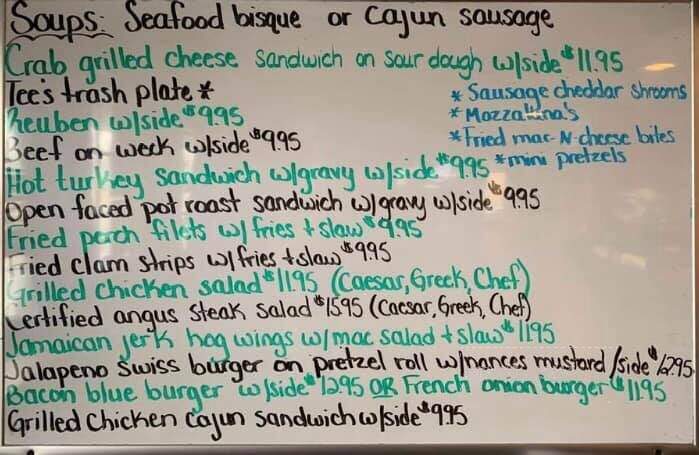 Soups: Seafood bisque or Cajun sausage
Crab grilled cheese sandwich on sour dough w/side $11.95
Tee's trash plate *
* Sausage cheddar shrooms
Reuben w/side $9.95
* Mozzarina's
Beef on weck w/side $9.95
* Fried mac-N-cheese bites
Hot turkey sandwich w/gravy w/side $9.95
* mini pretzels
Open faced pot roast sandwich w/gravy w/side $9.95
Fried perch filets w/ fries + slaw $9.95
Fried clam strips w/ fries + slaw $9.95
Grilled chicken salad $11.95 (Caesar, Greek, Chef)
Certified angus steak salad $15.95 (Caesar, Greek, Chef)
Jamaican jerk hog wings w/ mac salad + slaw $11.95
Jalapeno Swiss burger on pretzel roll w/nances mustard /side $12.95
Bacon blue burger w/side $12.95 OR French onion burger $11.95
Grilled Chicken Cajun Sandwich w/side $9.95